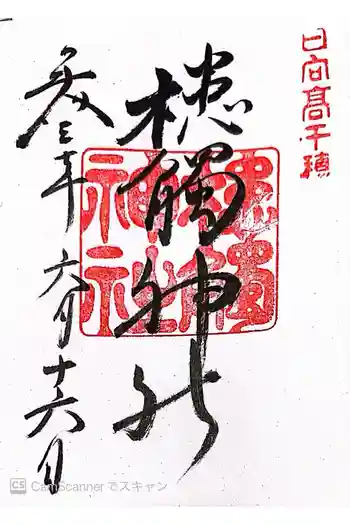 日向髙千穂
槵觸神社
令三年六月十六日
槵觸
神社
CS CamScanner でスキャン